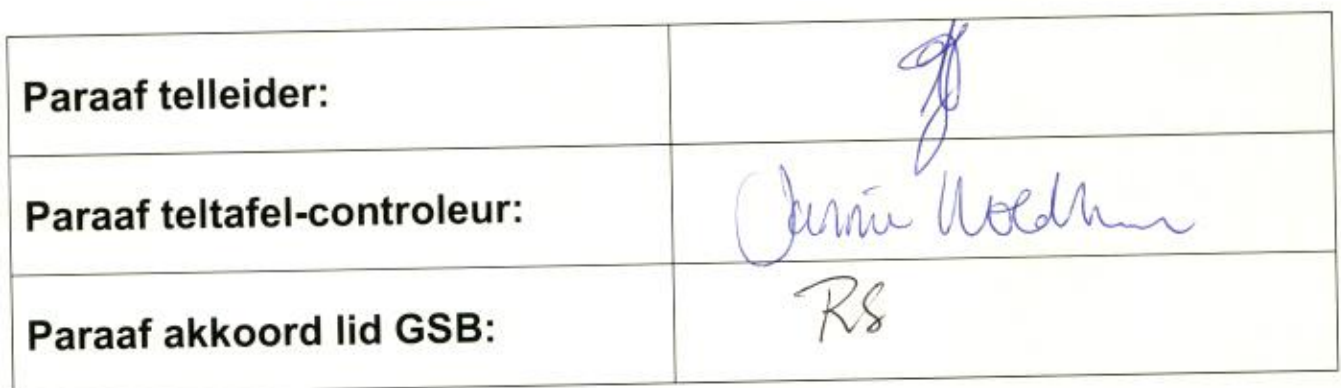 Paraaf telleider:
Paraaf teltafel-controleur:
Paraaf akkoord lid GSB: RS